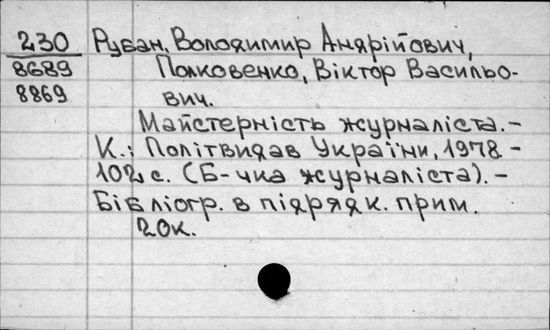 230 Рубан, Володимир Андрійович,
8689 Полковенко, Віктор Васильо-
8869 вич.
Майстерність журналіста.-
К.: Політвидав України, 1978.-
102 с. (Б-чка журналіста).-
Бібліогр. в підрядк. прим.
20к.